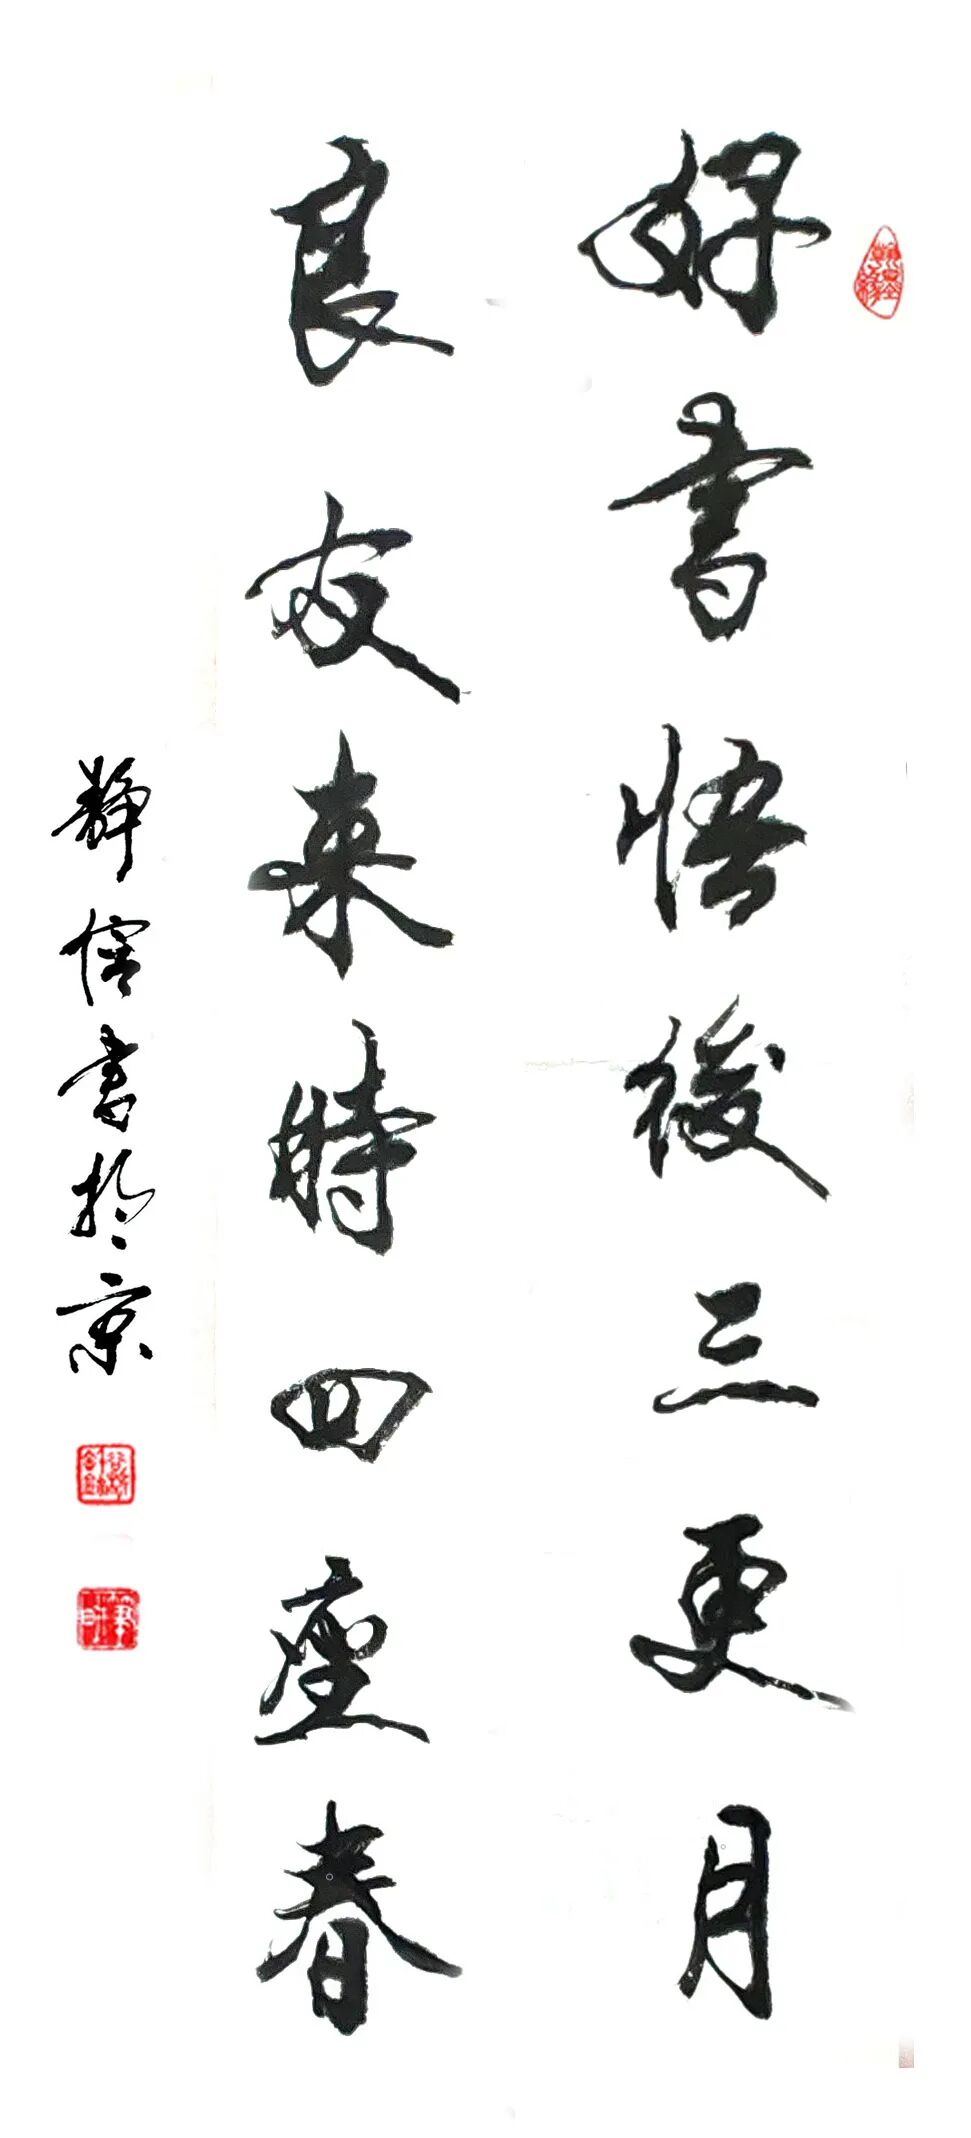 好書悟後三更月
良友来時四座春
静信書於京